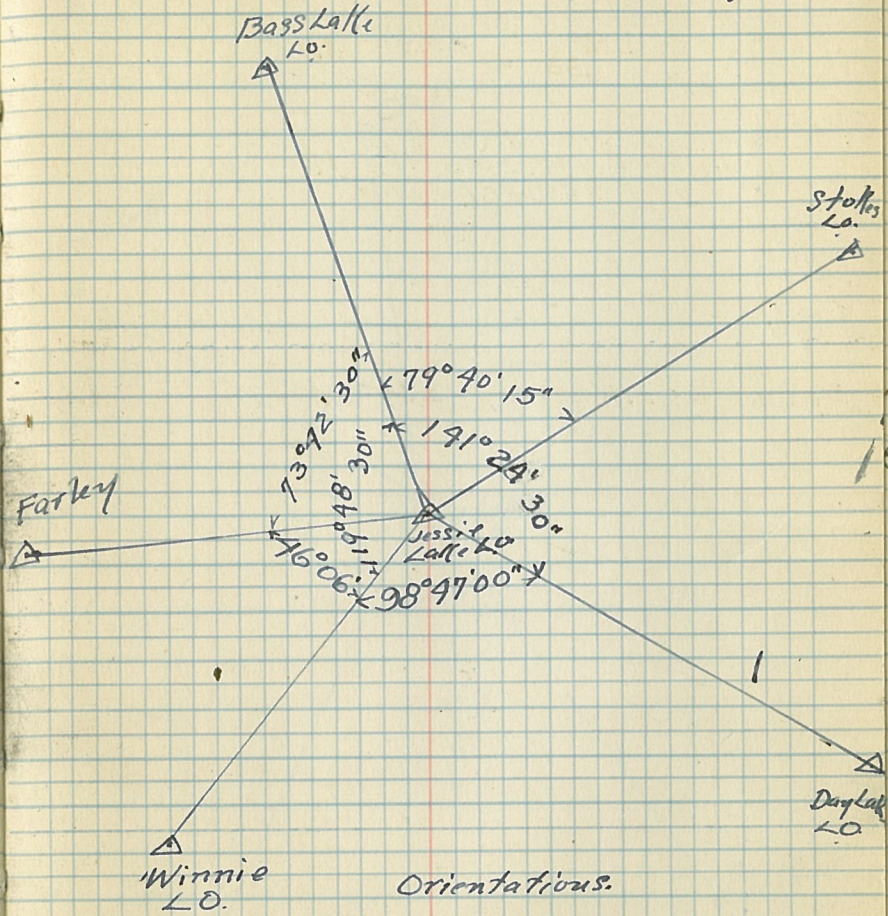 Bass Lake
L.O.
Stokes
L.O.
79° 40' 15"
73° 42' 30"
141° 24' 30"
119° 48' 30"
Farley
Jessie
Lake L.O.
46° 06'
98° 47' 00"
Day Lake
L.O.
Winnie
L.O.
Orientations.